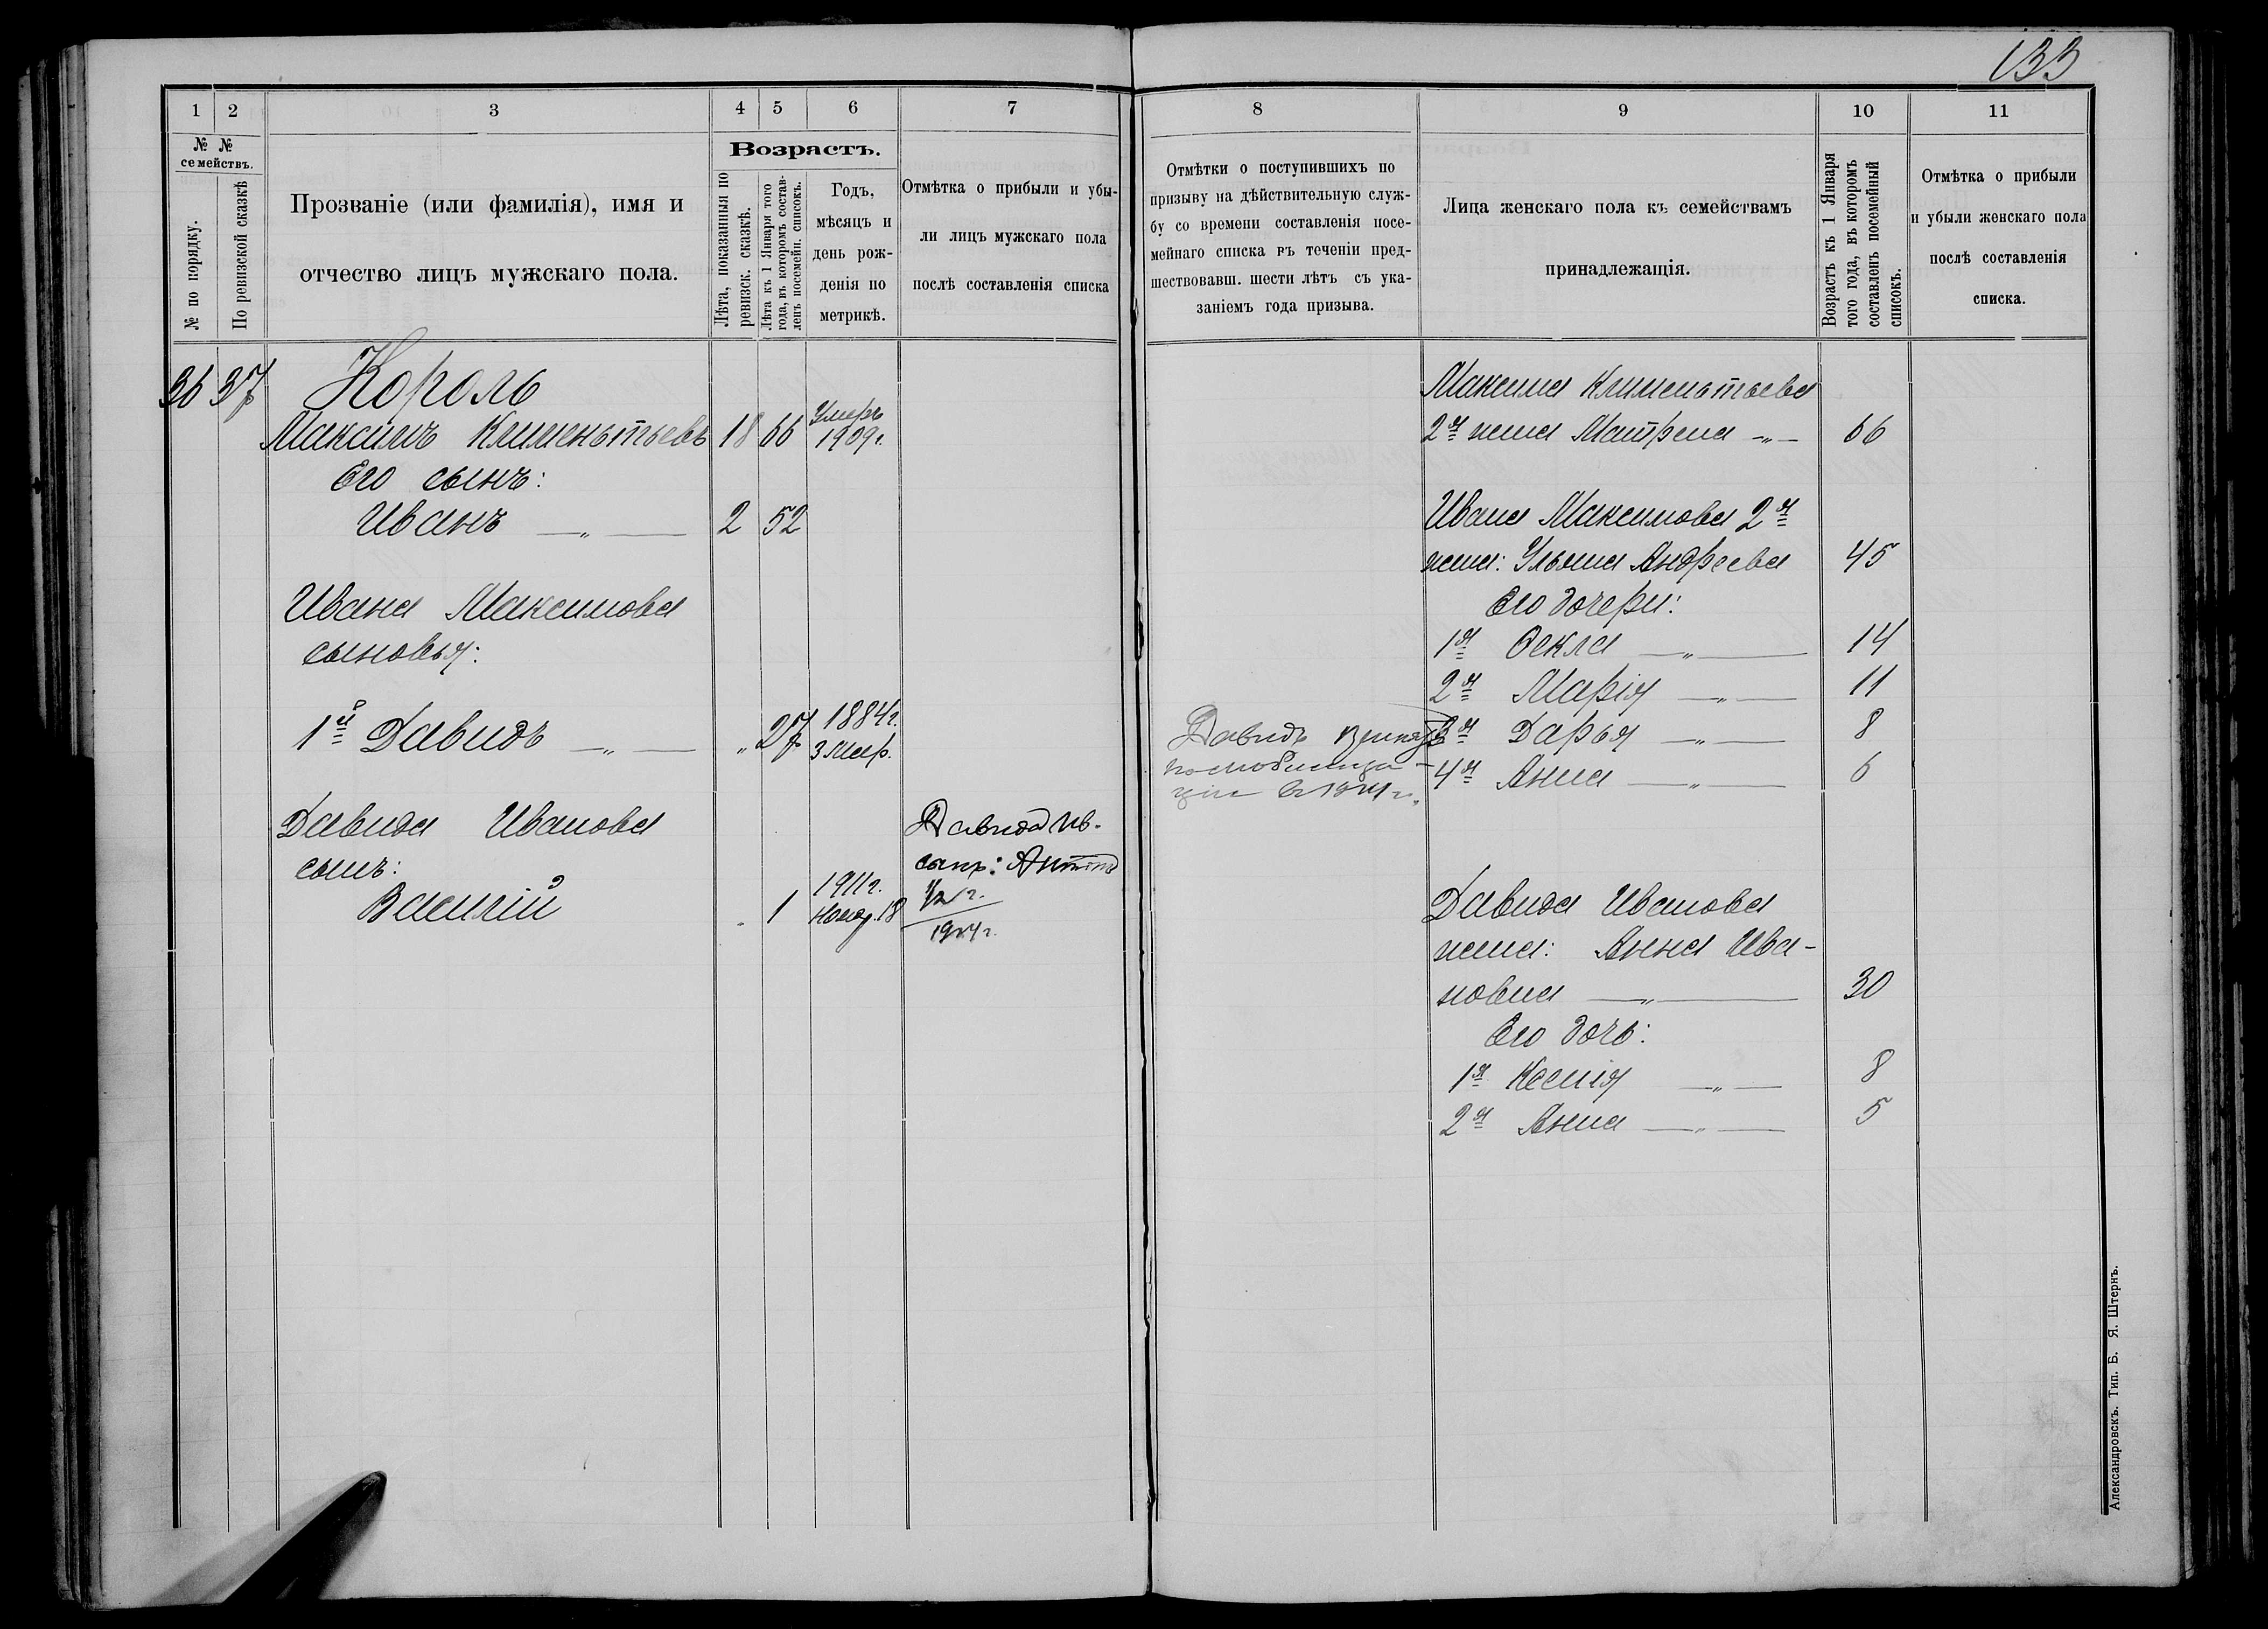 133
1 2 3 4 5 6 7
№ №
семействъ.
№ по порядку.
По ревизской сказкѣ
Прозваніе (или фамилія), имя и
отчество лицъ мужскаго пола.
Возрастъ.
Лѣта, показанныя по
ревизск. сказкѣ.
Лѣта къ 1 Января того
года, въ которомъ состав-
ленъ посемейн. списокъ.
Годъ,
мѣсяцъ и
день рож-
денія по
метрикѣ.
Отмѣтка о прибыли и убы-
ли лицъ мужскаго пола
послѣ составленія списка
36 37 Король
Максимъ Климентьевъ 18 66 Умеръ
1909г.
Его сынъ:
Иванъ —„— 2 52
Ивана Максимова
сыновья:
1й Давидъ —„— „ 27 1884г.
3 Мар.
Давида Иванова
сынъ:
Василій „ 1 1911г.
Нояб. 18
Давида Ив.
сынъ: Антонъ
1/2 г.
1914г.
8 9 10 11
Отмѣтки о поступившихъ по
призыву на дѣйствительную служ-
бу со времени составленія посе-
мейнаго списка въ теченіи пред-
шествовавш. шести лѣтъ съ ука-
заніемъ года призыва.
Лица женскаго пола къ семействамъ
принадлежащія.
Возрастъ къ 1 Января
того года, въ которомъ
составленъ посемейный
списокъ.
Отмѣтка о прибыли
и убыли женскаго пола
послѣ составленія
списка.
Максима Климентьева
2я жена Матрена —„— 66
Ивана Максимова 2я
жена: Ульяна Андреева 45
Его дочери:
1я Фекла —„— 14
2я Марія —„— 11
3я Дарья —„— 8
4я Анна —„— 6
Давидъ
по мобилиза-
ціи в 1914 г.
Давида Иванова
жена: Анна Ива-
новна —„— 30
Его дочь:
1я Ксенія —„— 8
2я Анна —„— 5
Александровскъ. Тип. Б. Я. Штернъ.